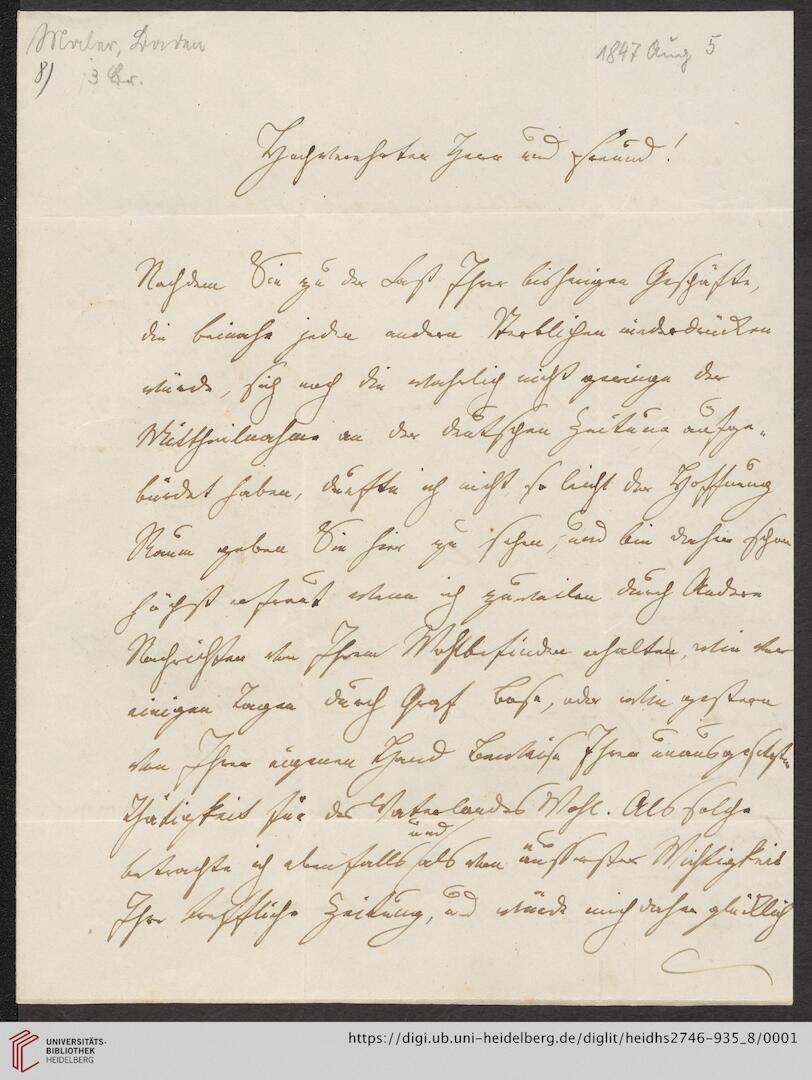 Maler, Baden
1847 Aug 5
8)
3 Br.
Hochverehrter Herr und Freund!
Nachdem Sie zu der Last Ihrer bisherigen Geschäfte,
die beinahe jeden andern Sterblichen niederdrücken
würde, sich noch die wahrlich nicht geringe der
Mittheilnahme an der deutschen Zeitung aufge-
bürdet haben, durfte ich nicht so leicht der Hoffnung
Raum geben Sie hier zu sehen, und bin daher schon
höchst erfreut wenn ich zuweilen durch Andere
Nachrichten von Ihrem Wohlbefinden erhalte, wie vor
einigen Tagen durch Graf Bose, oder wie gestern
von Ihrer eigenen Hand Beweise Ihrer unausgesetzten
Thätigkeit für des Vaterlandes Wohl. Als solche
und
betrachte ich ebenfalls als von äusserster Wichtigkeit
Ihre treffliche Zeitung, und würde mich daher glücklich
UNIVERSITÄTS-
BIBLIOTHEK
HEIDELBERG
https://digi.ub.uni-heidelberg.de/diglit/heidhs2746-935_8/0001